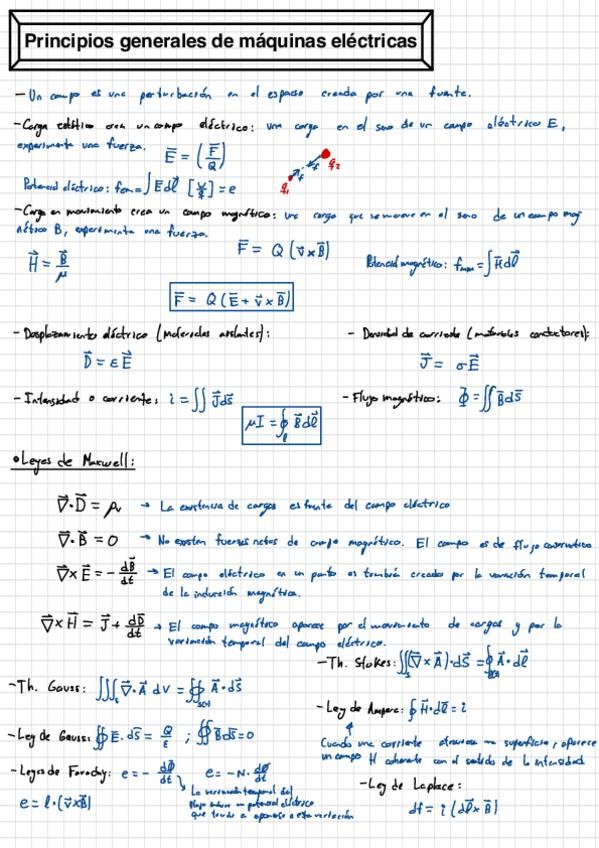 Principios generales de máquinas eléctricas
- Un campo es una perturbación en el espacio creada por una fuente.
- Carga estática crea un campo eléctrico: una carga en el seno de un campo eléctrico E,
experimenta una fuerza. E⃗ = (F⃗/Q)
q₁ F F q₂
Potencial eléctrico: fem = ∫ E⃗dl⃗ = e
- Carga en movimiento crea un campo magnético: una carga que se mueve en el seno de un campo mag
nético B, experimenta una fuerza.
H⃗ = B⃗/μ F⃗ = Q (v⃗xB⃗) Potencial magnético: fmm = ∫H⃗dl⃗
F⃗ = Q (E⃗ + v⃗ x B⃗)
- Desplazamiento eléctrico (materiales aislantes): - Densidad de corriente (materiales conductores):
D⃗ = εE⃗ J⃗ = σE⃗
- Intensidad o corriente: i = ∬ J⃗ds⃗ - Flujo magnético: Φ = ∬ B⃗ds⃗
μI = ∮ₗ B⃗dl⃗
• Leyes de Maxwell:
∇⃗·D⃗ = ρ → La existencia de cargas es fuente del campo eléctrico
∇⃗·B⃗ = 0 → No existen fuentes netas de campo magnético. El campo es de flujo conservativo
∇⃗x E⃗ = - dB⃗/dt → El campo eléctrico en un punto es también creado por la variación temporal
de la inducción magnética.
∇⃗x H⃗ = J⃗ + dD⃗/dt → El campo magnético aparece por el movimiento de cargas y por la
variación temporal del campo eléctrico.
- Th. Stokes: ∬ₛ(∇⃗ x A⃗)·dS⃗ = ∮ A⃗·dl⃗
- Th. Gauss: ∭ ∇⃗·A⃗ dV = ∯ A⃗·dS⃗
- Ley de Ampere: ∮ H⃗·dl⃗ = i
- Ley de Gauss: ∯ E⃗·dS⃗ = Q/ε ; ∯ B⃗dS⃗ = 0
Cuando una corriente atraviesa una superficie, aparece
un campo H coherente con el sentido de la intensidad
- Leyes de Faraday: e = - dΦ/dt e = -N·dΦ/dt
La variación temporal del
flujo induce un potencial eléctrico
que tiende a oponerse a esta variación
- Ley de Laplace:
e = l·(v⃗xB⃗) df = i (dl⃗ x B⃗)